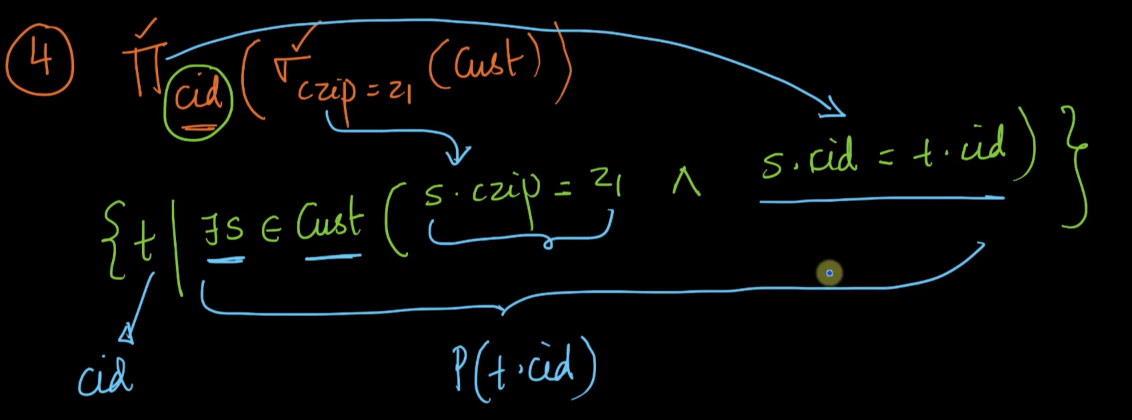 4 ∏ cid ( σ czip = z1 (Cust) )
{ t | ∃s ∈ Cust ( s.czip = z1 ∧ s.cid = t.cid ) }
cid P(t.cid)